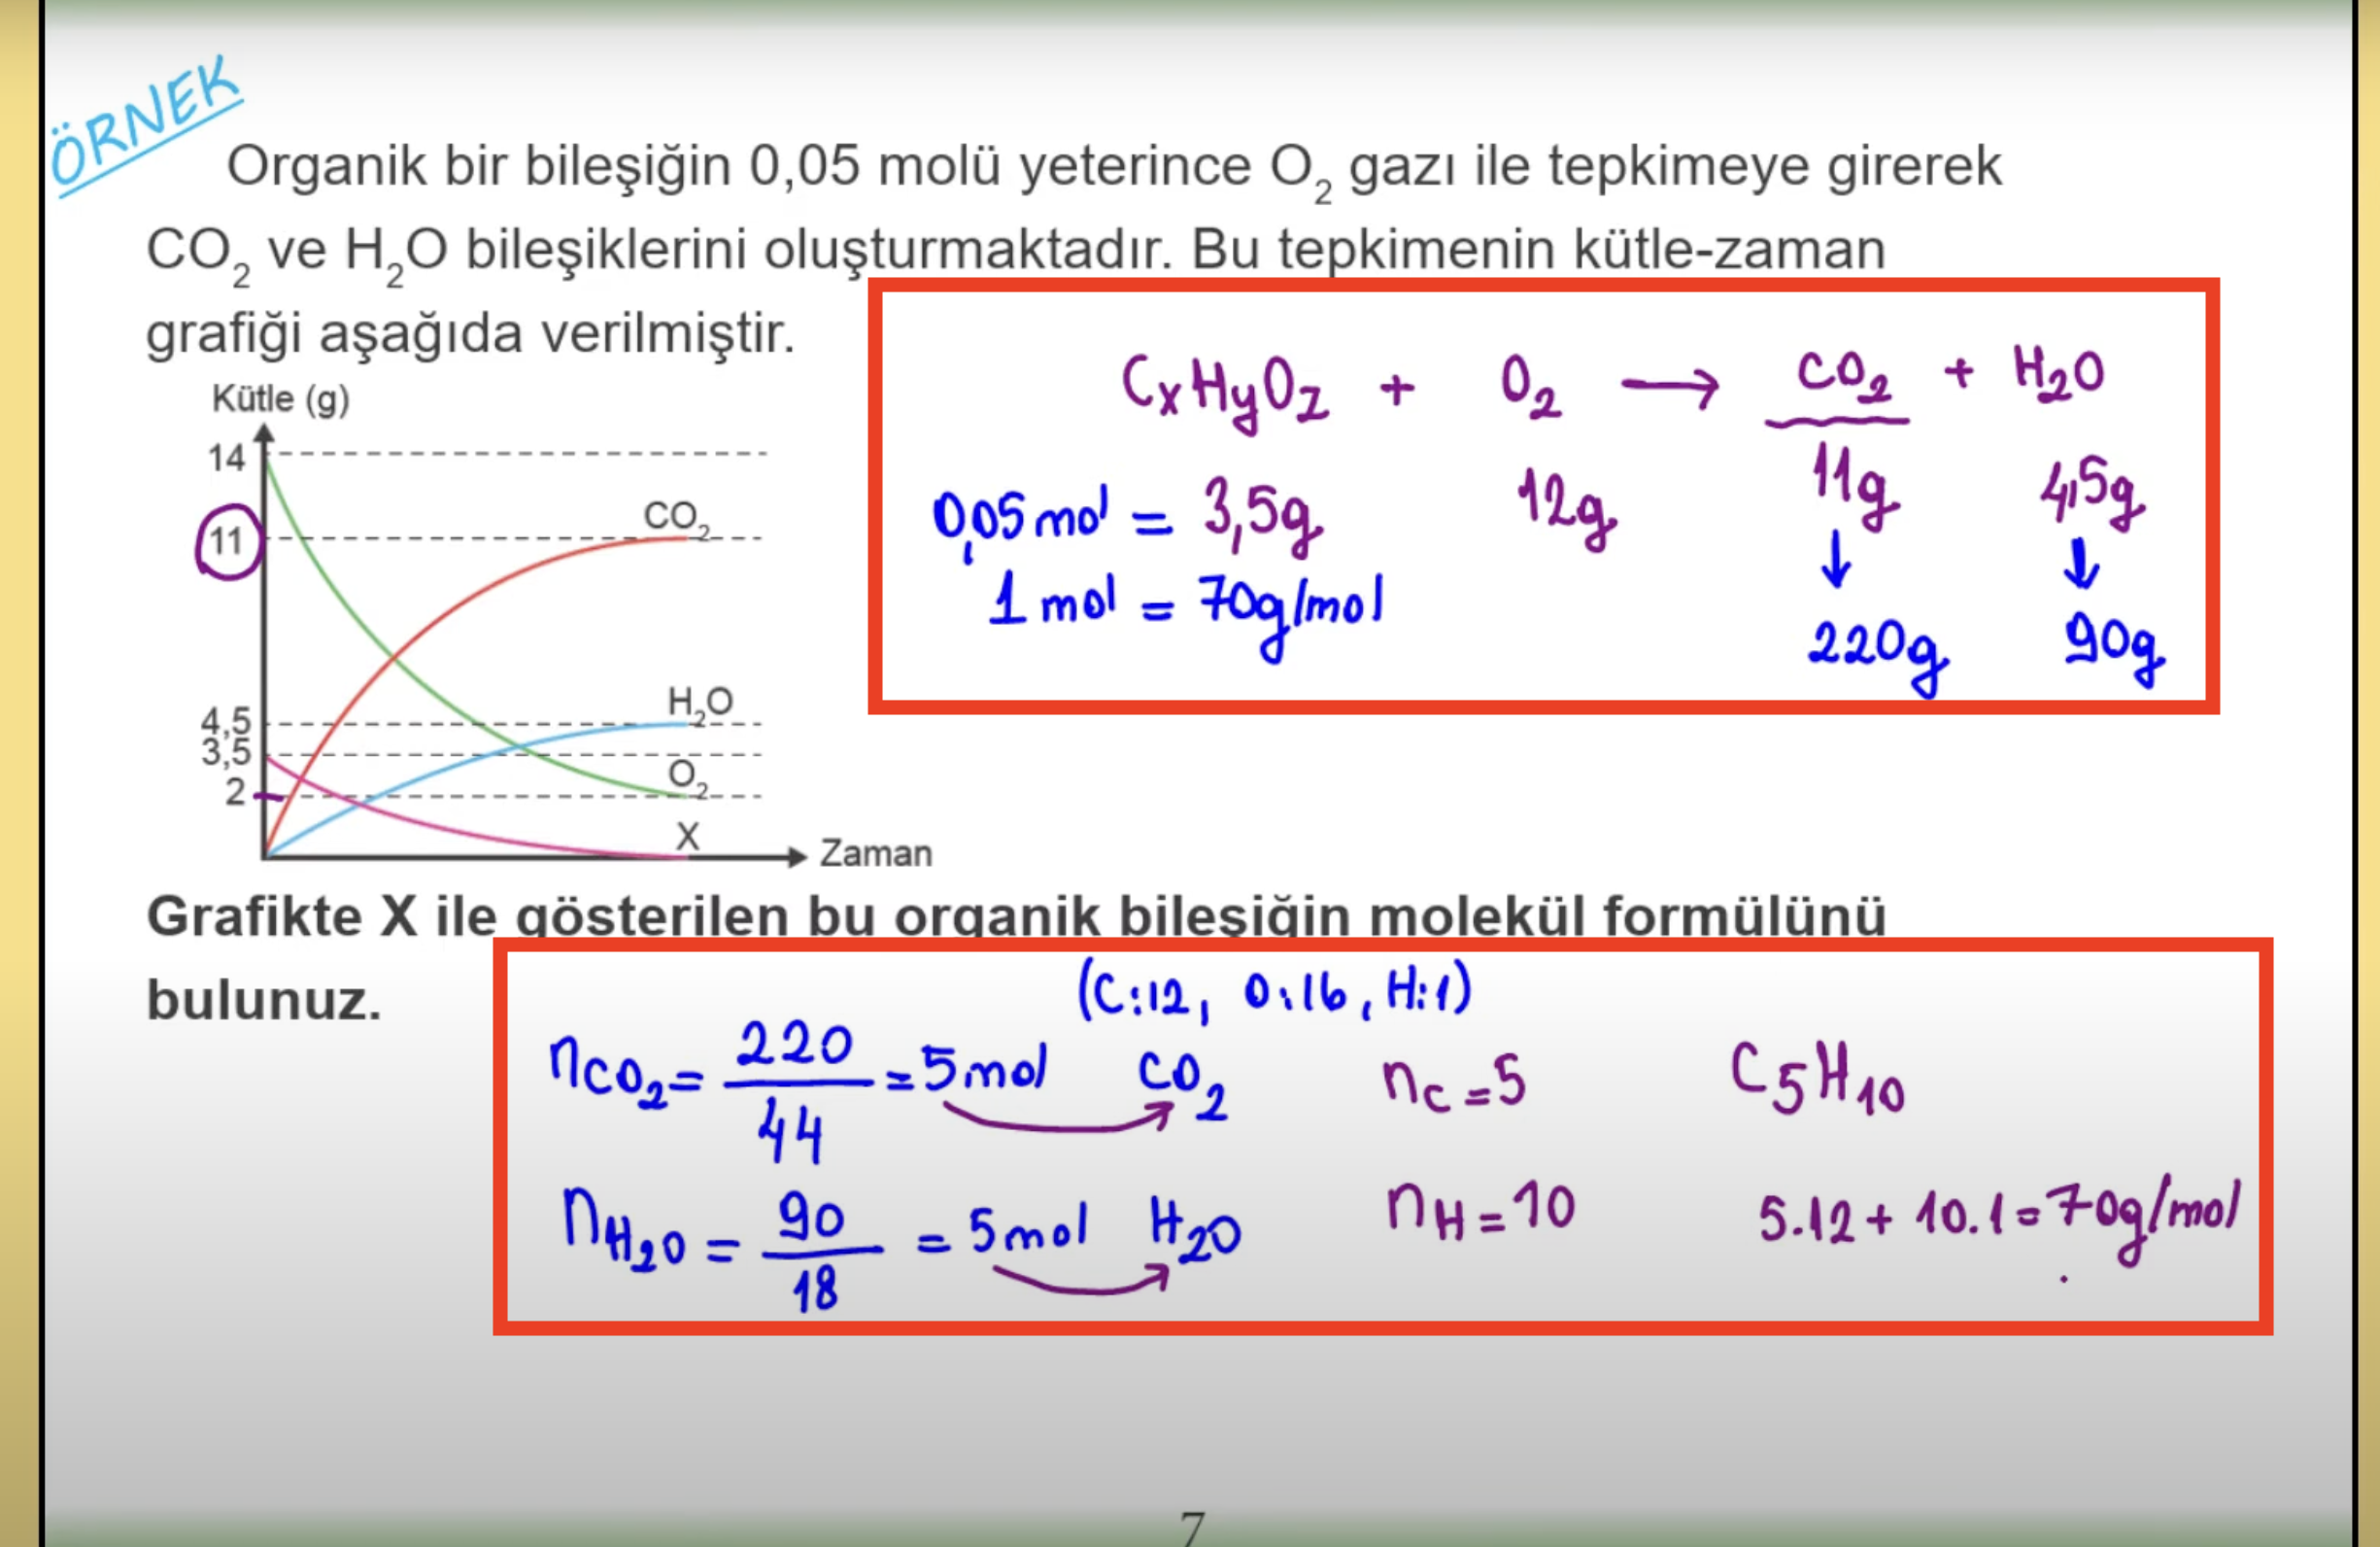 ÖRNEK
Organik bir bileşiğin 0,05 molü yeterince O₂ gazı ile tepkimeye girerek
CO₂ ve H₂O bileşiklerini oluşturmaktadır. Bu tepkimenin kütle-zaman
grafiği aşağıda verilmiştir.
CxHyOz + O₂ → CO₂ + H₂O
0,05 mol = 3,5g 12g 11g 4,5g
1 mol = 70g/mol ↓ ↓
220g 90g
Kütle (g)
14
11
CO₂
4,5
H₂O
3,5
O₂
2
X
Zaman
Grafikte X ile gösterilen bu organik bileşiğin molekül formülünü
bulunuz.
(C:12, O:16, H:1)
nCO₂ = 220/44 = 5 mol CO₂ nC = 5 C₅H₁₀
nH₂O = 90/18 = 5 mol H₂O nH = 10 5.12 + 10.1 = 70g/mol
7